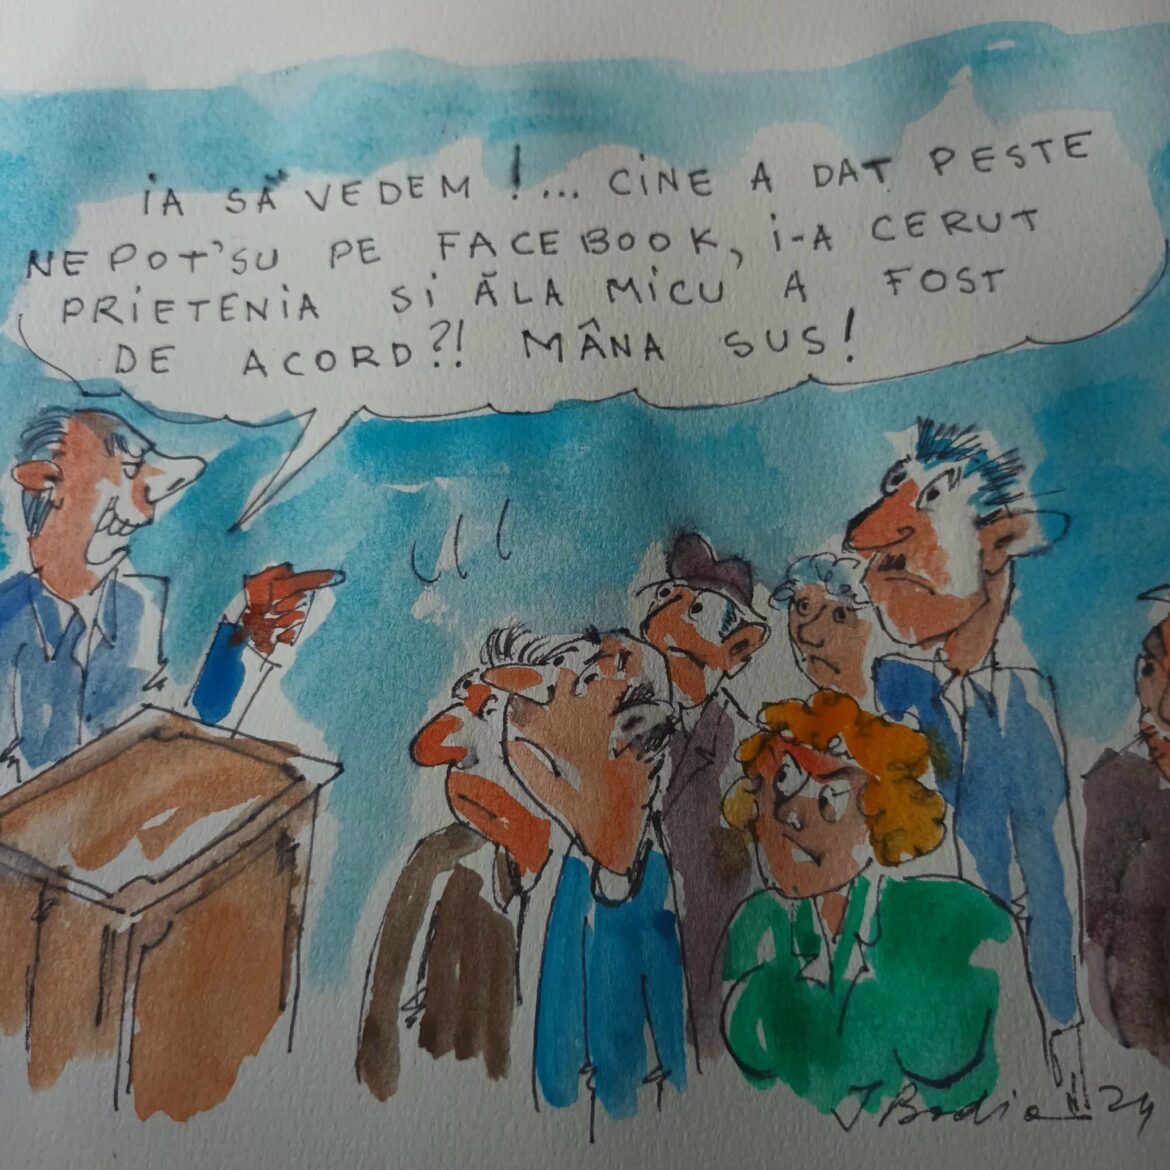 IA SĂ VEDEM !... CINE A DAT PESTE
NEPOT'SU PE FACEBOOK, I-A CERUT
PRIETENIA SI ĂLA MICU A FOST
DE ACORD?! MÂNA SUS!
24